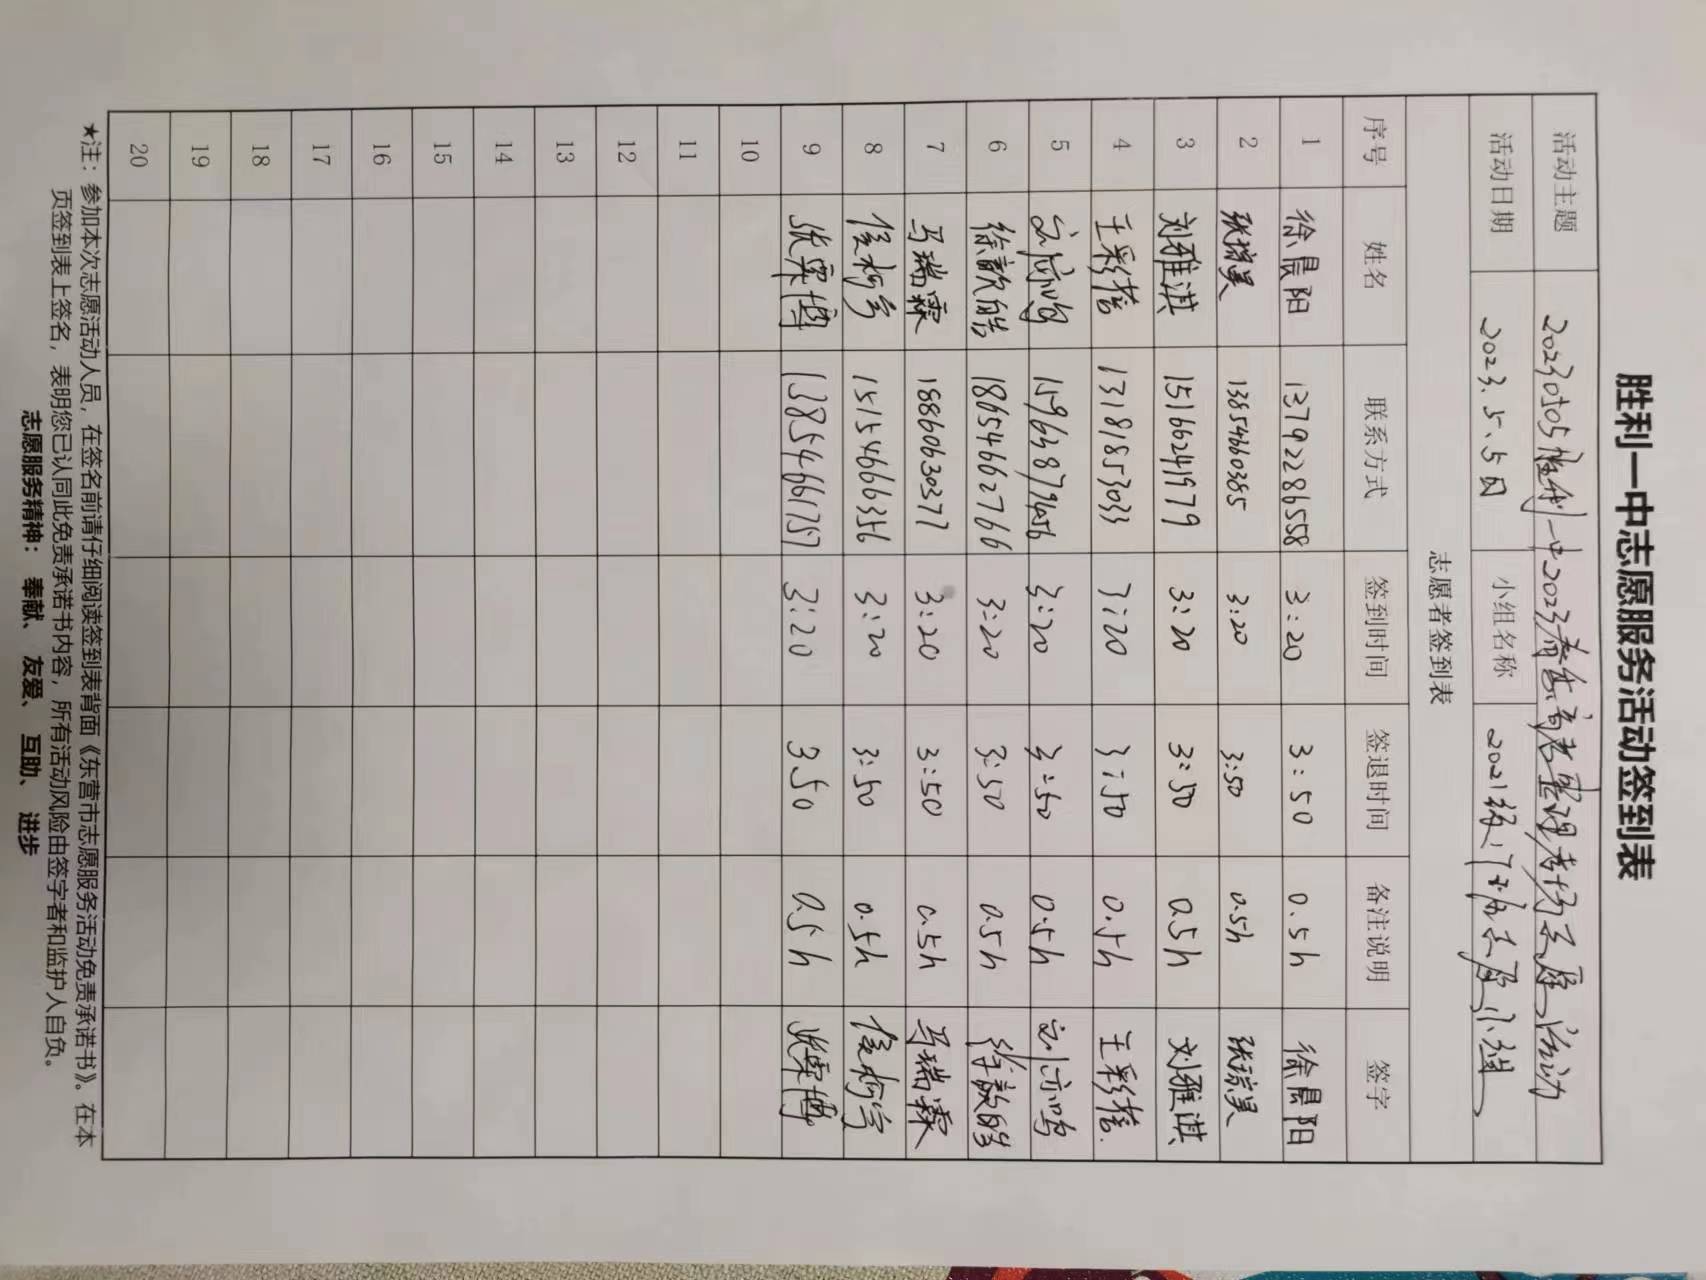 胜利一中志愿服务活动签到表
活动主题 20230505胜利一中2023春季高考布置考场志愿活动
活动日期 2023.5.5日 小组名称 2021级17班志愿小组
志愿者签到表
序号 姓名 联系方式 签到时间 签退时间 备注说明 签字
1 徐晨阳 13792286558 3:20 3:50 0.5h 徐晨阳
2 张琮昊 13854660385 3:20 3:50 0.5h 张琮昊
3 刘雅淇 15166249979 3:20 3:50 0.5h 刘雅淇
4 王彩 13181853033 3:20 3:50 0.5h 王彩
5 刘亦鸣 3:20 3:50 0.5h 刘亦鸣
6 徐歆皓 18654662766 3:20 3:50 0.5h 徐歆皓
7 马瑞霖 18860630377 3:20 3:50 0.5h 马瑞霖
8 侯柯宇 15154666356 3:20 3:50 0.5h 侯柯宇
9 张奕博 13854661757 3:20 3.50 0.5h 张奕博
10
11
12
13
14
15
16
17
18
19
20
★注：参加本次志愿活动人员，在签名前请仔细阅读签到表背面《东营市志愿服务活动免责承诺书》。在本
页签到表上签名，表明您已认同此免责承诺书内容，所有活动风险由签字者和监护人自负。
志愿服务精神：奉献、友爱、互助、进步